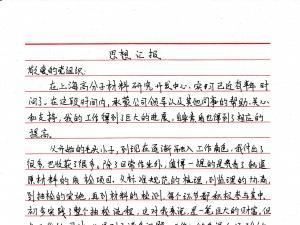 思想汇报
敬爱的党组织:
在上海高分子材料研究开发中心,实习已近有半年时
间了。在这段时间内,承蒙公司领导以及其他同事的帮助、关心
和支持,我的工作得到了巨大的进展,自身素质也得到了相应的
提高。
从开始的毛头小子,到现在逐渐融入工作角色,我付出了
很多,也收获了很多。除了日常作业外,值得一提的是参与了轨道
原材料的质检项目。从标准规范的梳理,到监理的协商,
到抽检的实施,再到材料的检测,每个环节都积极参与其中,
初步实践了整个抽检流程,这对我来说,是一笔巨大的财富,但